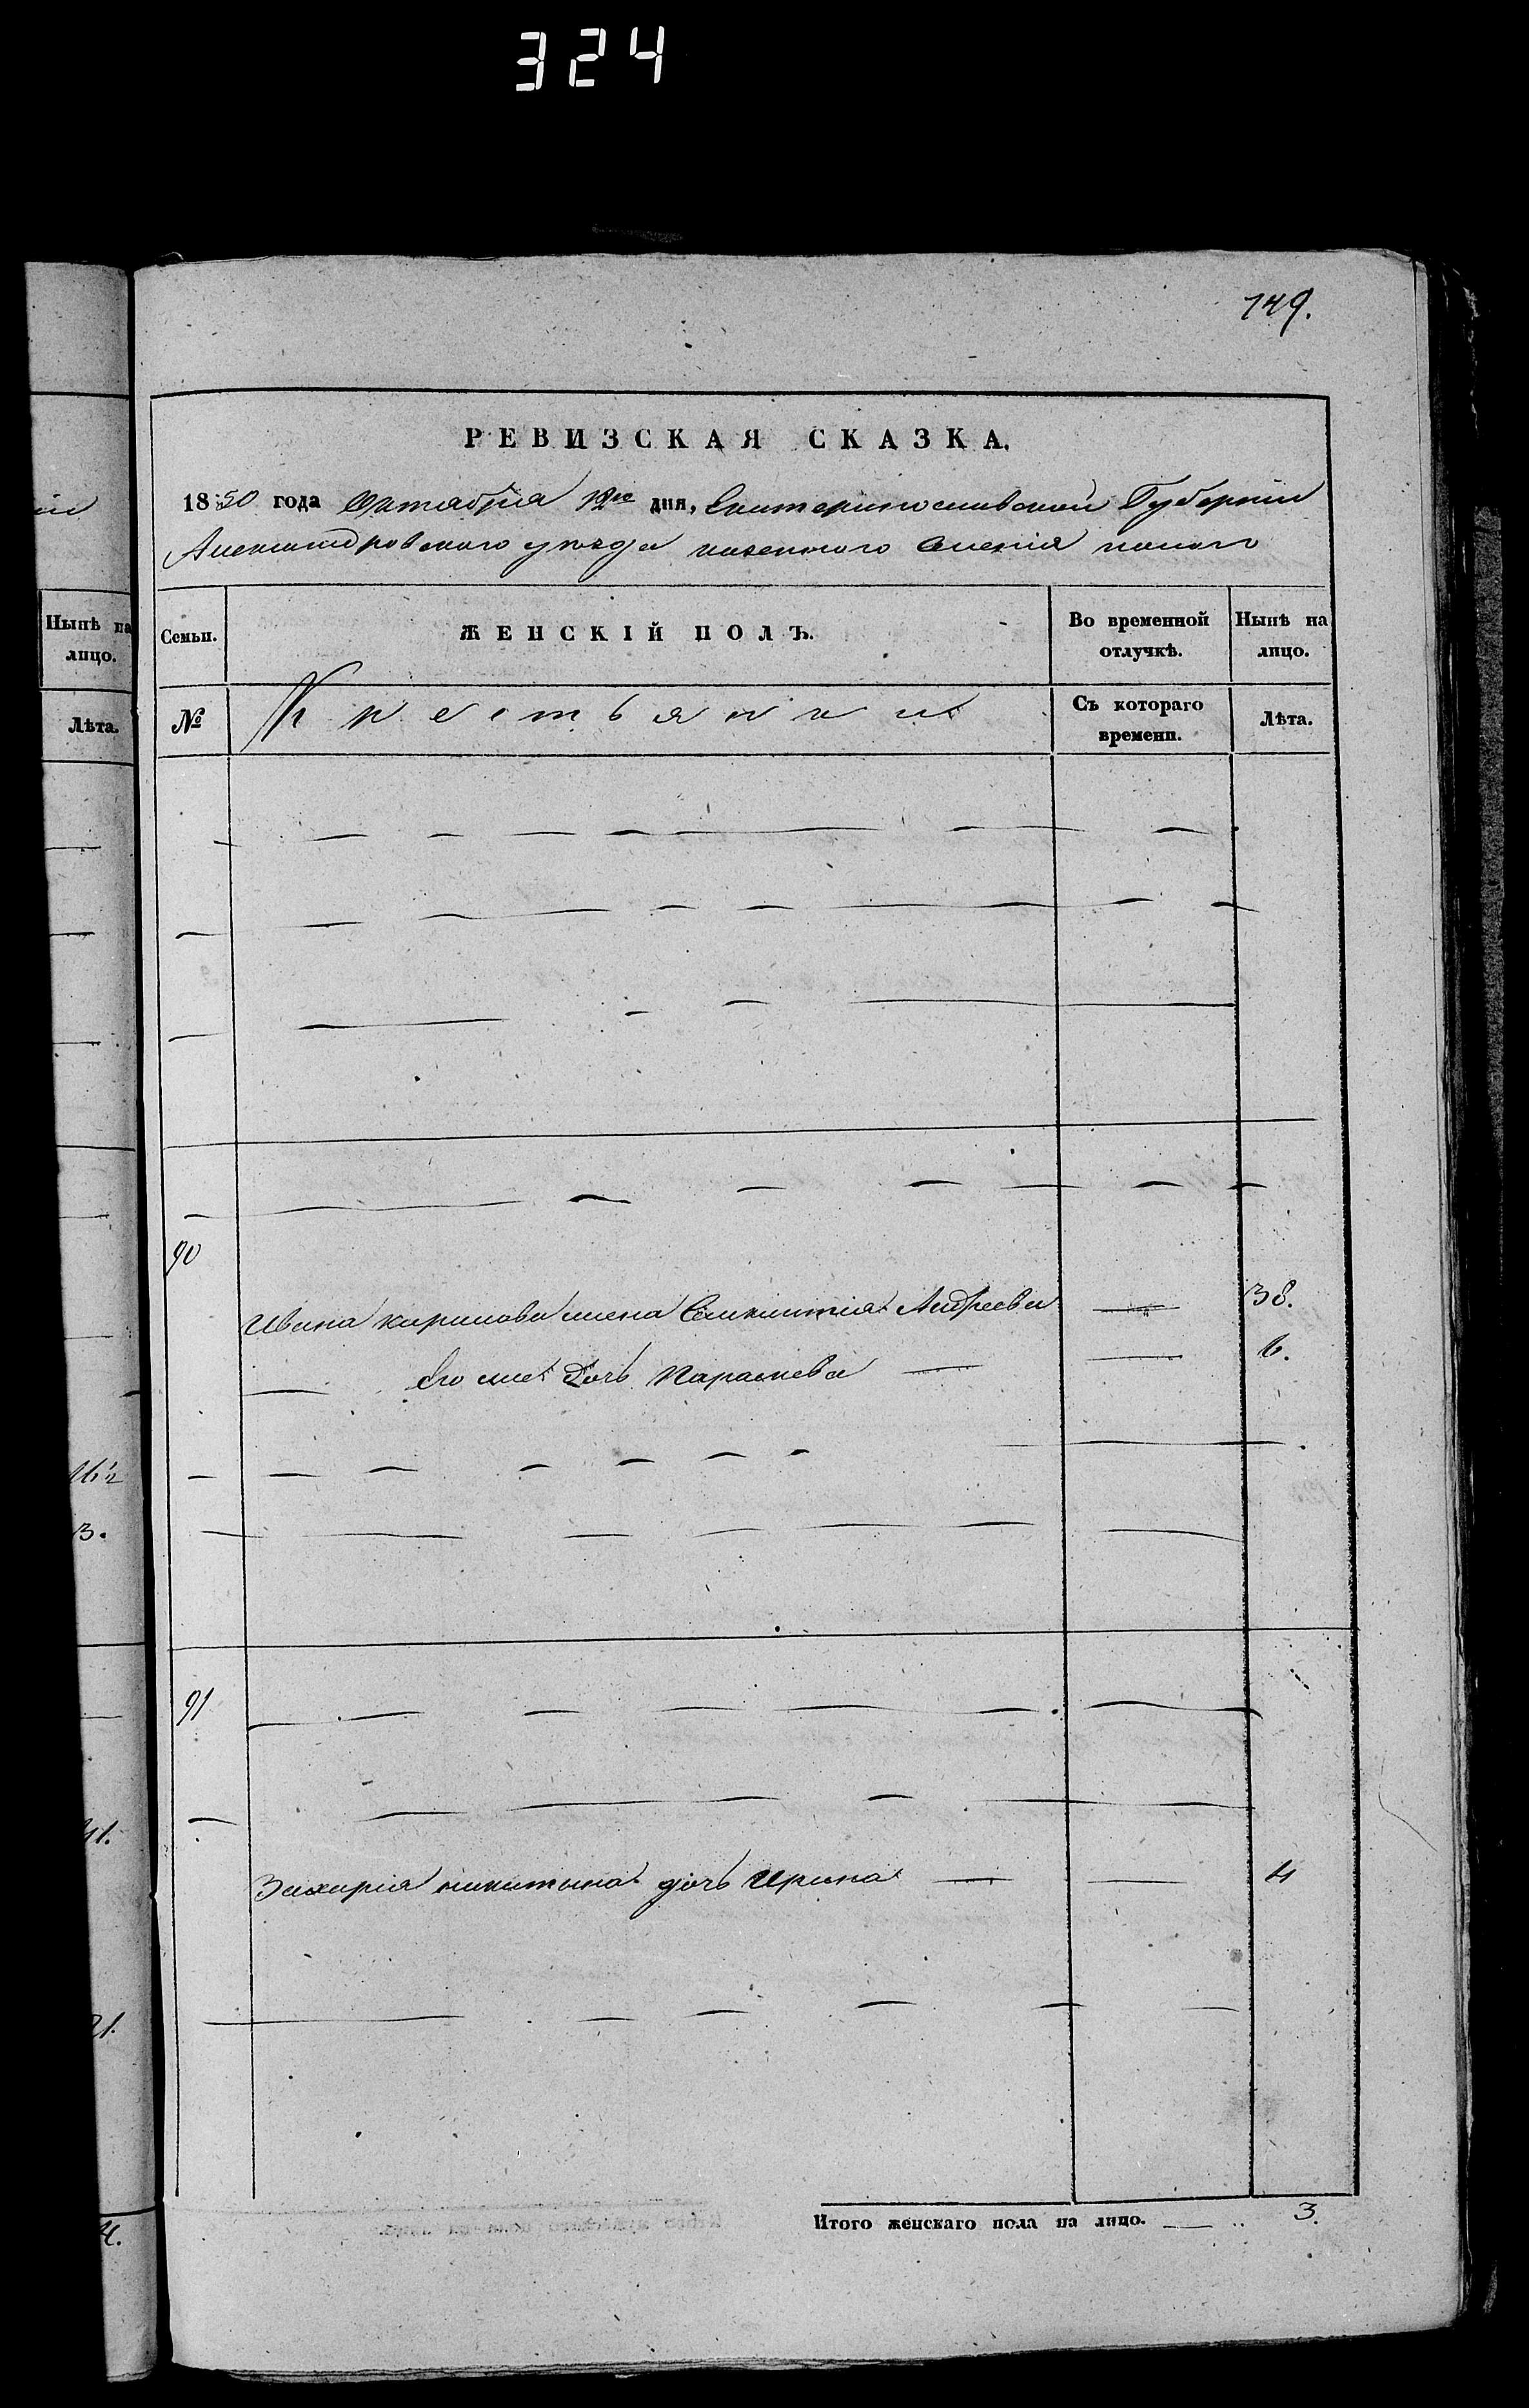 324
149.
РЕВИЗСКАЯ СКАЗКА.
1850 года Октября 12го дня, Екатеринославской Губернии
Александровского уезда казенного селенія
Нынѣ на лицо.
Лѣта.
Семьи. ЖЕНСКІЙ ПОЛЪ. Во временной отлучкѣ. Нынѣ на лицо.
№ Крестьянки Съ котораго времени. Лѣта.
90
Ивана Кирилова жена Андреева 38.
Его дочь Параскева 6.
3.
91
41.
Захария Никитина дочь Ирина 4
21.
Итого женскаго пола на лицо. 3.